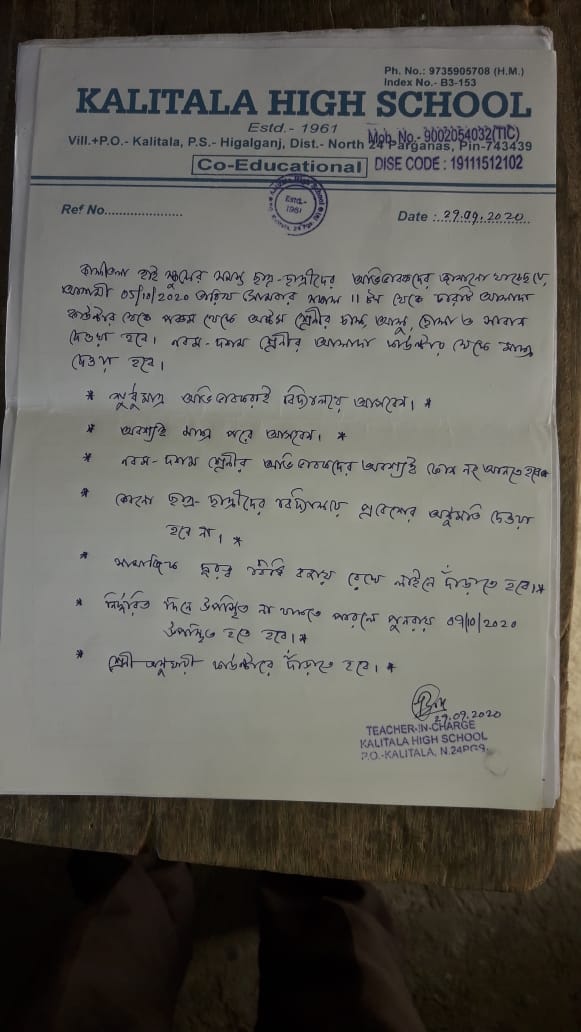 Ph. No.: 9735905708 (H.M.)
Index No.- B3-153
KALITALA HIGH SCHOOL
Estd.- 1961
Mob. No.- 9002054032(TIC)
Vill.+P.O.- Kalitala, P.S.- Higalganj, Dist.- North 24 Parganas, Pin-743439
Co-Educational
DISE CODE : 19111512102
Kalitala High School
Estd.-
1961
Ref No....................
Date : 29.09.2020
কালীতলা হাই স্কুলের সমস্ত ছাত্র-ছাত্রীদের অভিভাবকদের জানানো যাচ্ছে যে,
আগামী 05/10/2020 তারিখ সোমবার সকাল 11 টা থেকে চারটি আলাদা
কাউন্টার থেকে পঞ্চম থেকে অষ্টম শ্রেনীর চাল, আলু, ছোলা ও সাবান
দেওয়া হবে। নবম-দশম শ্রেনীর আলাদা কাউন্টার থেকে মাস্ক
দেওয়া হবে।
* শুধুমাত্র অভিভাবকরাই বিদ্যালয়ে আসবেন। *
* অবশ্যই মাস্ক পরে আসবেন। *
* নবম-দশম শ্রেনীর অভিভাবকদের অবশ্যই ফোন নং আনতে হবে *
* কোনো ছাত্র-ছাত্রীদের বিদ্যালয়ে প্রবেশের অনুমতি দেওয়া
হবে না। *
* সামাজিক দূরত্ব বিধি বজায় রেখে লাইনে দাঁড়াতে হবে। *
* নির্ধারিত দিনে উপস্থিত না থাকতে পারলে পুনরায় 09/10/2020
উপস্থিত হতে হবে। *
* শ্রেনী অনুযায়ী কাউন্টারে দাঁড়াতে হবে। *
29.09.2020
TEACHER-IN-CHARGE
KALITALA HIGH SCHOOL
P.O.-KALITALA, N.24PGS.